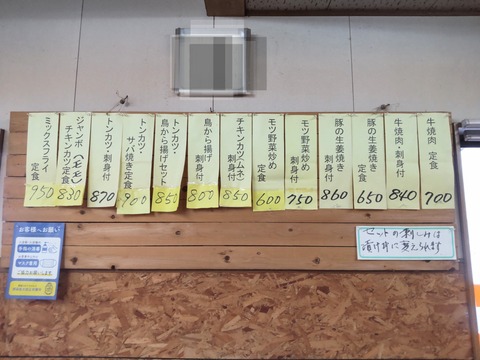 牛焼肉 定食
700
牛焼肉・刺身付
840
豚の生姜焼き
定食
650
豚の生姜焼き
刺身付
860
モツ野菜炒め
刺身付
750
モツ野菜炒め
定食
600
チキンカツ(ムネ)
刺身付
850
鳥から揚げ
刺身付
800
トンカツ・
鳥から揚げセット
850
トンカツ・
サバ焼き定食
900
トンカツ・刺身付
870
ジャンボ(モモ)
チキンカツ定食
830
ミックスフライ
定食
950
セットの刺しみは
漬け丼に変えられます
お客様へお願い
手指の消毒
マスク着用
ご協力お願いします